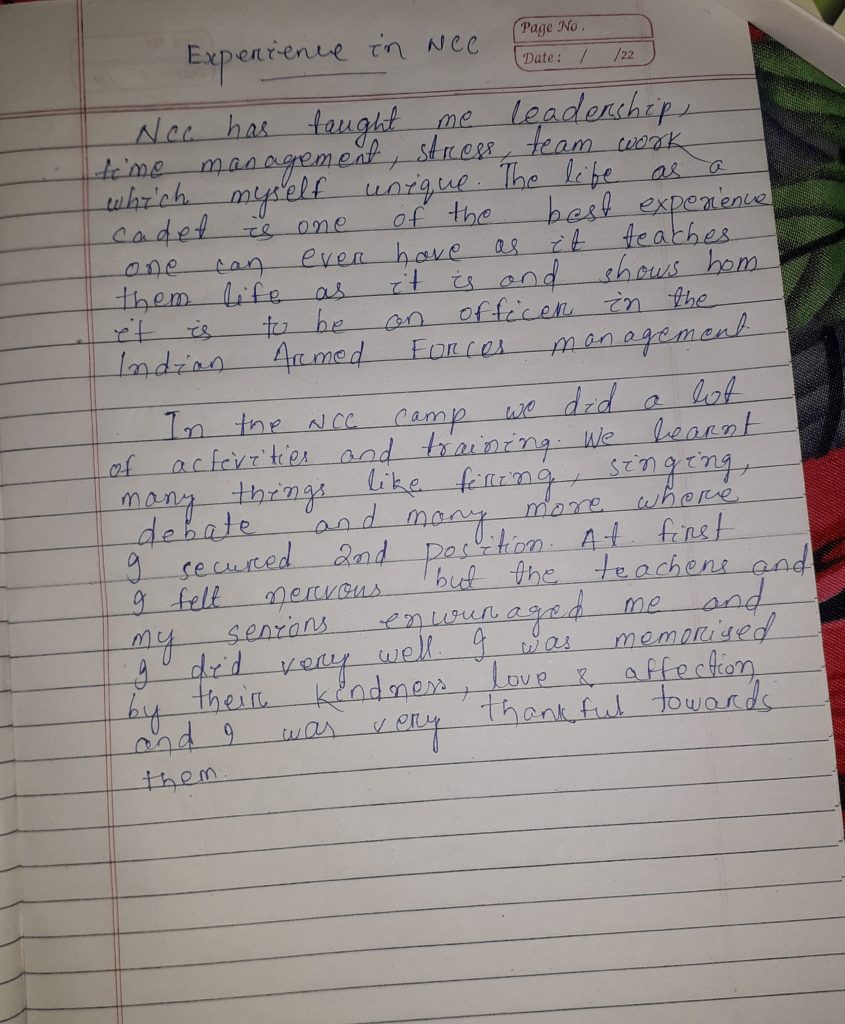 Experience in NCC
Page No.
Date: / /22
Ncc has taught me leadership,
time management, stress, team work
which myself unique. The life as a
cadet is one of the best experience
one can ever have as it teaches
them life as it is and shows hom
it is to be an officer in the
Indian Armed Forces management.
In the NCC camp we did a lot
of activities and training. We learnt
many things like firing, singing,
debate and many more where
I secured 2nd position. At first
I felt nervous but the teachers and
my seniors encouraged me and
I did very well. I was memorised
by their kindness, love & affection
and I was very thankful towards
them.